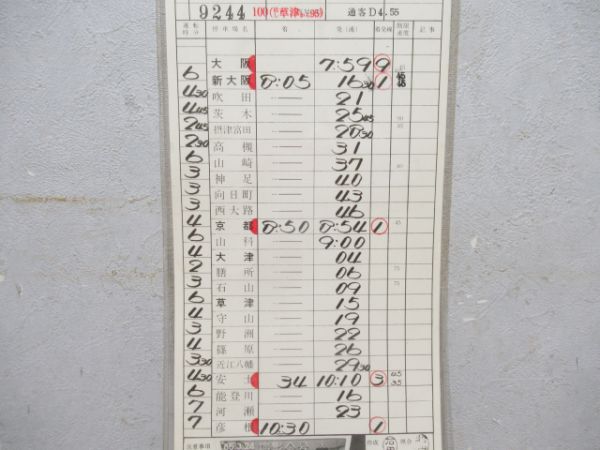 9244 草津 95 通客D4.55
運転時分 停車場名 着 発(通) 着発線 制限速度 記事
大阪 7:59 9
6 新大阪 8:05 16 30 1
4 30 吹田 — 21
4 45 茨木 — 25 45
2 45 摂津富田 — 28 30
2 30 高槻 — 31
6 山崎 — 37
3 神足 — 40
3 向日町 — 43
3 西大路 — 46
4 京都 8:50 8:54 1 45
6 山科 — 9:00
4 大津 — 04
2 膳所 — 06 75
3 石山 — 09 75
6 草津 — 15
4 守山 — 19
3 野洲 — 22
4 篠原 — 26
3 30 近江八幡 — 29 30
4 30 安土 34 10:10 3
6 能登川 — 16
7 河瀬 — 23
7 彦根 10:30 1
注意事項 作成 照合